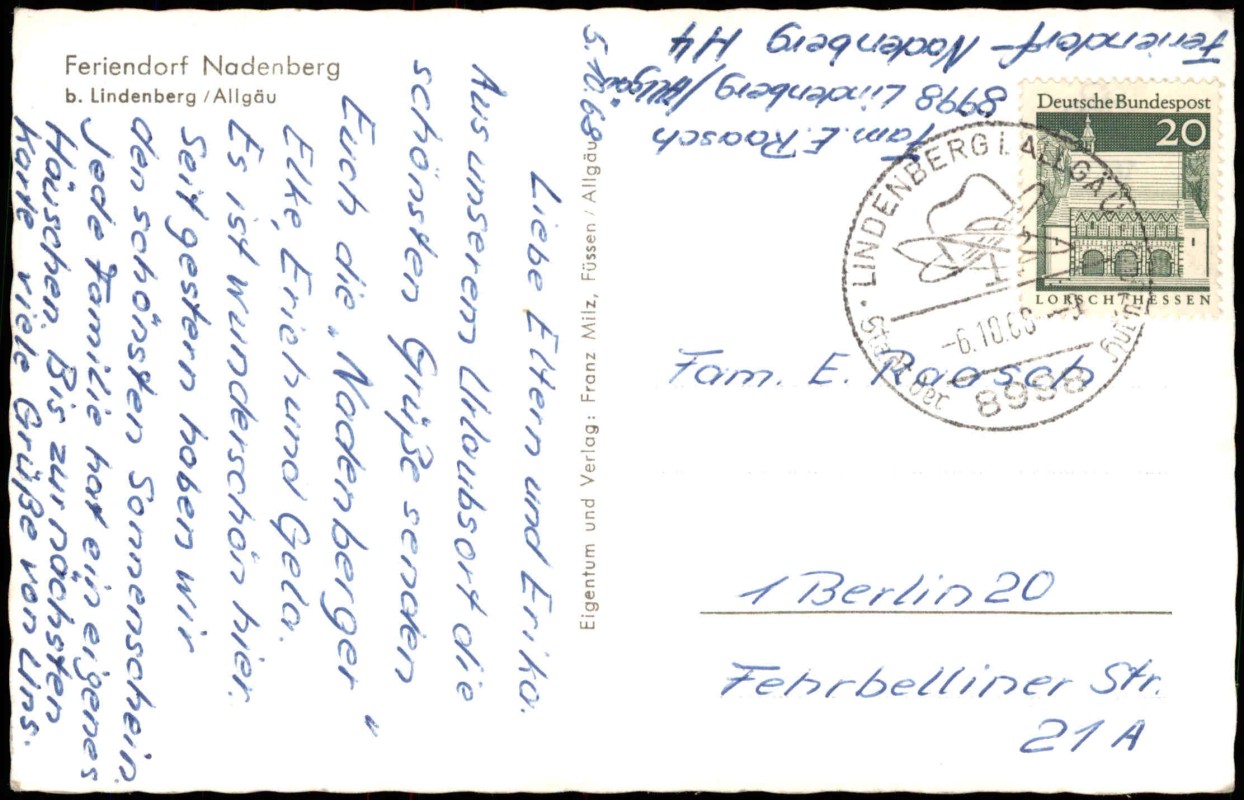 Feriendorf Nadenberg
b. Lindenberg/Allgäu
5.10.68
Liebe Eltern und Erika.
Aus unserem Urlaubsort die
schönsten Grüße senden
Euch die „Nadenberger"
Elke, Erich und Gela.
Es ist wunderschön hier.
Seit gestern haben wir
den schönsten Sonnenschein.
Jede Familie hat ein eigenes
Häuschen. Bis zur nächsten
Karte viele Grüße von Uns.
Eigentum und Verlag: Franz Milz, Füssen/Allgäu
Fam. E. Raasch
8998 Lindenberg/Allgäu
Feriendorf-Nadenberg H4
Deutsche Bundespost
20
LORSCH/HESSEN
LINDENBERG I. ALLGÄU
-6.10.68
8998
Fam. E. Raasch
1 Berlin 20
Fehrbelliner Str.
21A